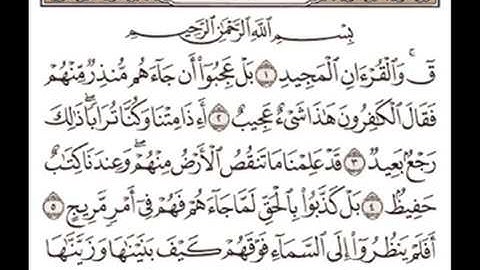 بِسْمِ اللَّهِ الرَّحْمَٰنِ الرَّحِيمِ
قٓ ۚ وَالْقُرْءَانِ الْمَجِيدِ ١ بَلْ عَجِبُوٓا۟ أَن جَآءَهُم مُّنذِرٌ مِّنْهُمْ
فَقَالَ الْكَٰفِرُونَ هَٰذَا شَىْءٌ عَجِيبٌ ٢ أَءِذَا مِتْنَا وَكُنَّا تُرَابًا ۖ ذَٰلِكَ
رَجْعٌۢ بَعِيدٌ ٣ قَدْ عَلِمْنَا مَا تَنقُصُ الْأَرْضُ مِنْهُمْ ۖ وَعِندَنَا كِتَٰبٌ
حَفِيظٌۢ ٤ بَلْ كَذَّبُوا۟ بِالْحَقِّ لَمَّا جَآءَهُمْ فَهُمْ فِىٓ أَمْرٍ مَّرِيجٍ ٥
أَفَلَمْ يَنظُرُوٓا۟ إِلَى السَّمَآءِ فَوْقَهُمْ كَيْفَ بَنَيْنَٰهَا وَزَيَّنَّٰهَا